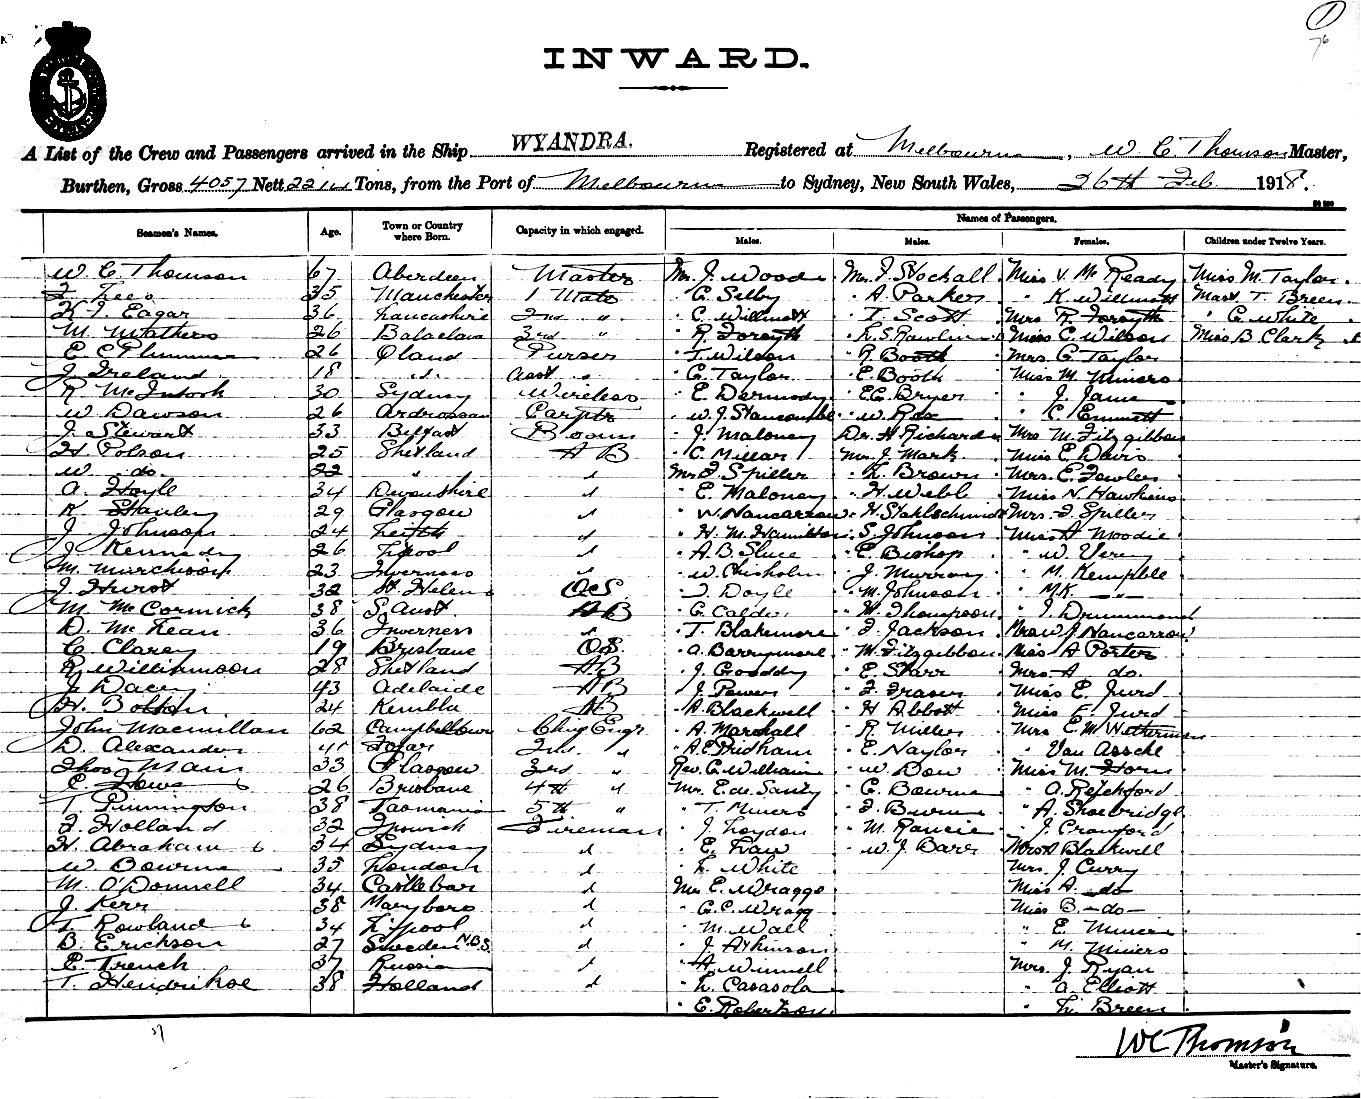 1
76
INWARD.
A List of the Crew and Passengers arrived in the Ship WYANDRA. Registered at Melbourne, W. C. Thomson Master,
Burthen, Gross 4057 Nett 2214 Tons, from the Port of Melbourne to Sydney, New South Wales, 26th Feb 1918.
Names of Passengers.
Seamen's Names. Age. Town or Country where Born. Capacity in which engaged. Males. Males. Females. Children under Twelve Years.
W. C. Thomson 67 Aberdeen Master Mr. J. Wood Mr. J. Stockall Miss V. Mc Ready Miss M. Taylor
35 Manchester 1 Mate " C. Selby " A Parker " K. Willmott Mast. T. Breen
Eagar 36 Lancashire 2nd " " C. Willmott " T. Scott Mrs R. Forsyth " C. White
M. Mathers 26 Balaclava 3rd " " R. Forsyth Miss C. Wilson Miss B Clark
E. C. Plummer 26 Qland Purser " T. Wilson " R Booth Mrs. G. Taylor
J. Ireland 18 " Asst " " G. Taylor " E. Booth Miss M. Miners
R McIntosh 30 Sydney Wireless " E. Dermody " E. C. Bryer " J. Jame
W Dawson 26 Ardrossan Carptr " W. J. Stancombe " W. Rox " C. Emmett
J. Stewart 33 Belfast Bosun " J. Maloney Dr. H Richards Mrs M. Fitzgibbon
H Polson 25 Shetland AB " C. Millar Mr. J. Mark Miss E. Davis
W. do. 22 " " Mr J. Spiller " L. Brown Mrs. E. Fowler
A. Hoyle 34 Devonshire " " E. Maloney " H. Webb Miss N. Hawkins
K Stanley 29 Glasgow " " W. Nancarrow " H. Stahlschmidt Mrs. J. Spiller
J Johnson 24 Leith " " H. M. Hamilton " S. Johnson Miss A Woodie
J. Kennedy 26 L'pool " " A. B. Sluce " E. Bishop " W. Very
M. Murchison 23 Inverness " " W. Chisholm " J. Murray " M. Kemple
J. Hurst 32 St. Helens OS. " J. Doyle " M. Johnson " M.K. — " —
M. McCormick 38 S. Aust AB " G. Calder " W. Thompson " J. Drummond
D. McLean 36 Inverness " " T. Blakemore " J. Jackson Mrs W J Nancarrow
C. Clarey 19 Brisbane OS. " A. Barrymore " M. Fitzgibbon Miss A Porter
R. Williamson 28 Shetland AB " J. Gooddy " E. Starr Mrs. A do.
J. Dacey 43 Adelaide AB " J. Power " J. Fraser Miss E. Jurd
H. Bolton 24 Kembla AB " A. Blackwell " H Abbott Miss E. Jurd
John Macmillan 62 Campbeltown Chief Engr " A. Marshall " R. Miller Mrs E. M. Wetherman
D. Alexander 41 2nd " " A. E. Pridham " E. Naylor " Van Assche
Thos Main 33 Glasgow 3rd " Rev. C. William " W Dow Miss M. Horn
C. Howe 26 Brisbane 4th " Mr. E. de Santy " C. Bourne " A. Retchford
T. Pinnington 38 Tasmania 5th " " T. Miners " J. Burns " A. Shoebridge
J. Holland 32 Ipswich Fireman " J. Loydon " M. Rancie " J. Crawford
H. Abraham 34 Sydney " " E. Law " W. J. Barr Mrs A Blackwell
W Bourne 35 London " " L. White Mrs. J. Curry
M. O'Donnell 34 Castlebar " Mr E. Wragge Miss A. do
J. Kerr 38 Maryboro " " G. C. Wragg Miss B — do —
T. Rowland 34 L'pool " " M. Wall " E Miners
B. Erickson 27 Sweden N.B.S. " " J Atkinson " M. Miners
E. French 37 Russia " " A Winnell Mrs. J. Ryan
T. Hendrikse 38 Holland " " L. Casasola " A. Elliott
" E. Robertson " L. Breen
37
WC Thomson
Master's Signature.